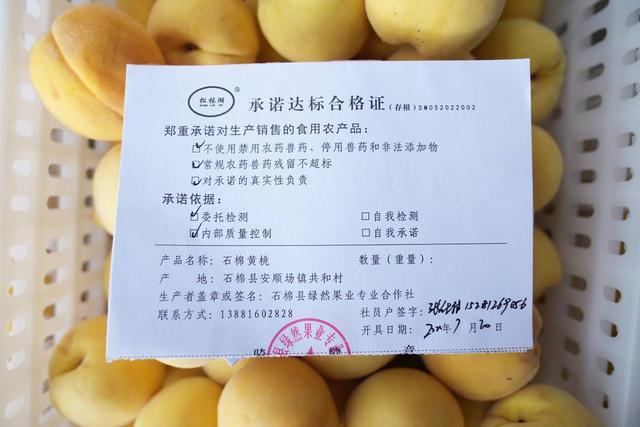 松林湖®
承诺达标合格证(存根)SM052022002
郑重承诺对生产销售的食用农产品:
☑不使用禁用农药兽药、停用兽药和非法添加物
☑常规农药兽药残留不超标
☑对承诺的真实性负责
承诺依据:
☑委托检测 □自我检测
☑内部质量控制 □自我承诺
产品名称:石棉黄桃 数量(重量):
产 地:石棉县安顺场镇共和村
生产者盖章或签名:石棉县绿然果业专业合作社
联系方式:13881602828 社员户签字: 15281269056
开具日期: 年7月20日
县绿然果业专业
骑 章